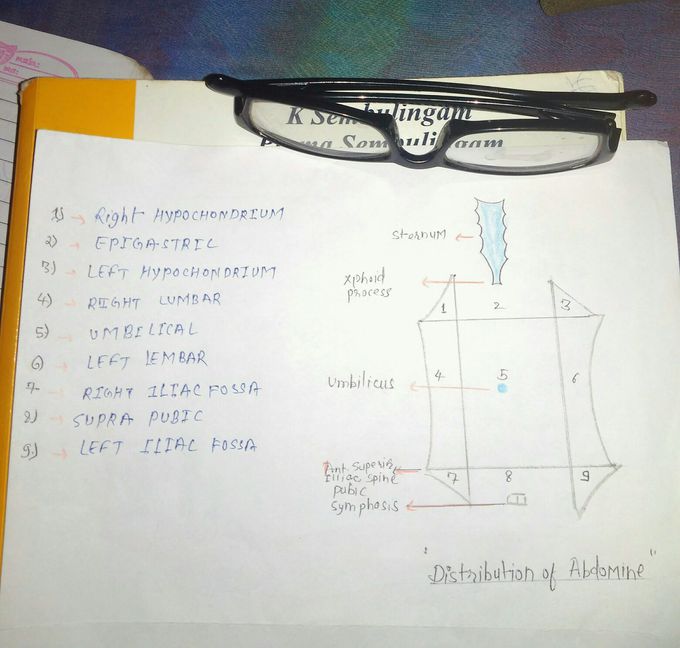 K Sembulingam
Prema Sembulingam
1) → Right HYPOCHONDRIUM
2) → EPIGASTRIC
3) → LEFT HYPOCHONDRIUM
4) → RIGHT LUMBAR
5) → UMBILICAL
6) → LEFT LEMBAR
7 → RIGHT ILIAC FOSSA
8) → SUPRA PUBIC
9) → LEFT ILIAC FOSSA
sternum
xphoid
process
1 2 3
umbilicus
4 5 6
Ant superior
iliac spine
pubic
symphosis
7 8 9
"Distribution of Abdomine"